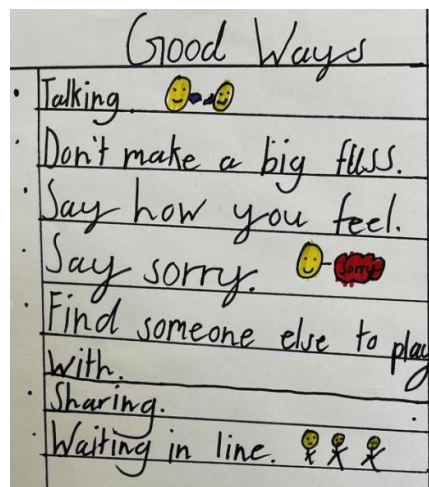 Good Ways
Talking.
Don't make a big fuss.
Say how you feel.
Say sorry.
Sorry
Find someone else to play
with.
Sharing.
Waiting in line.